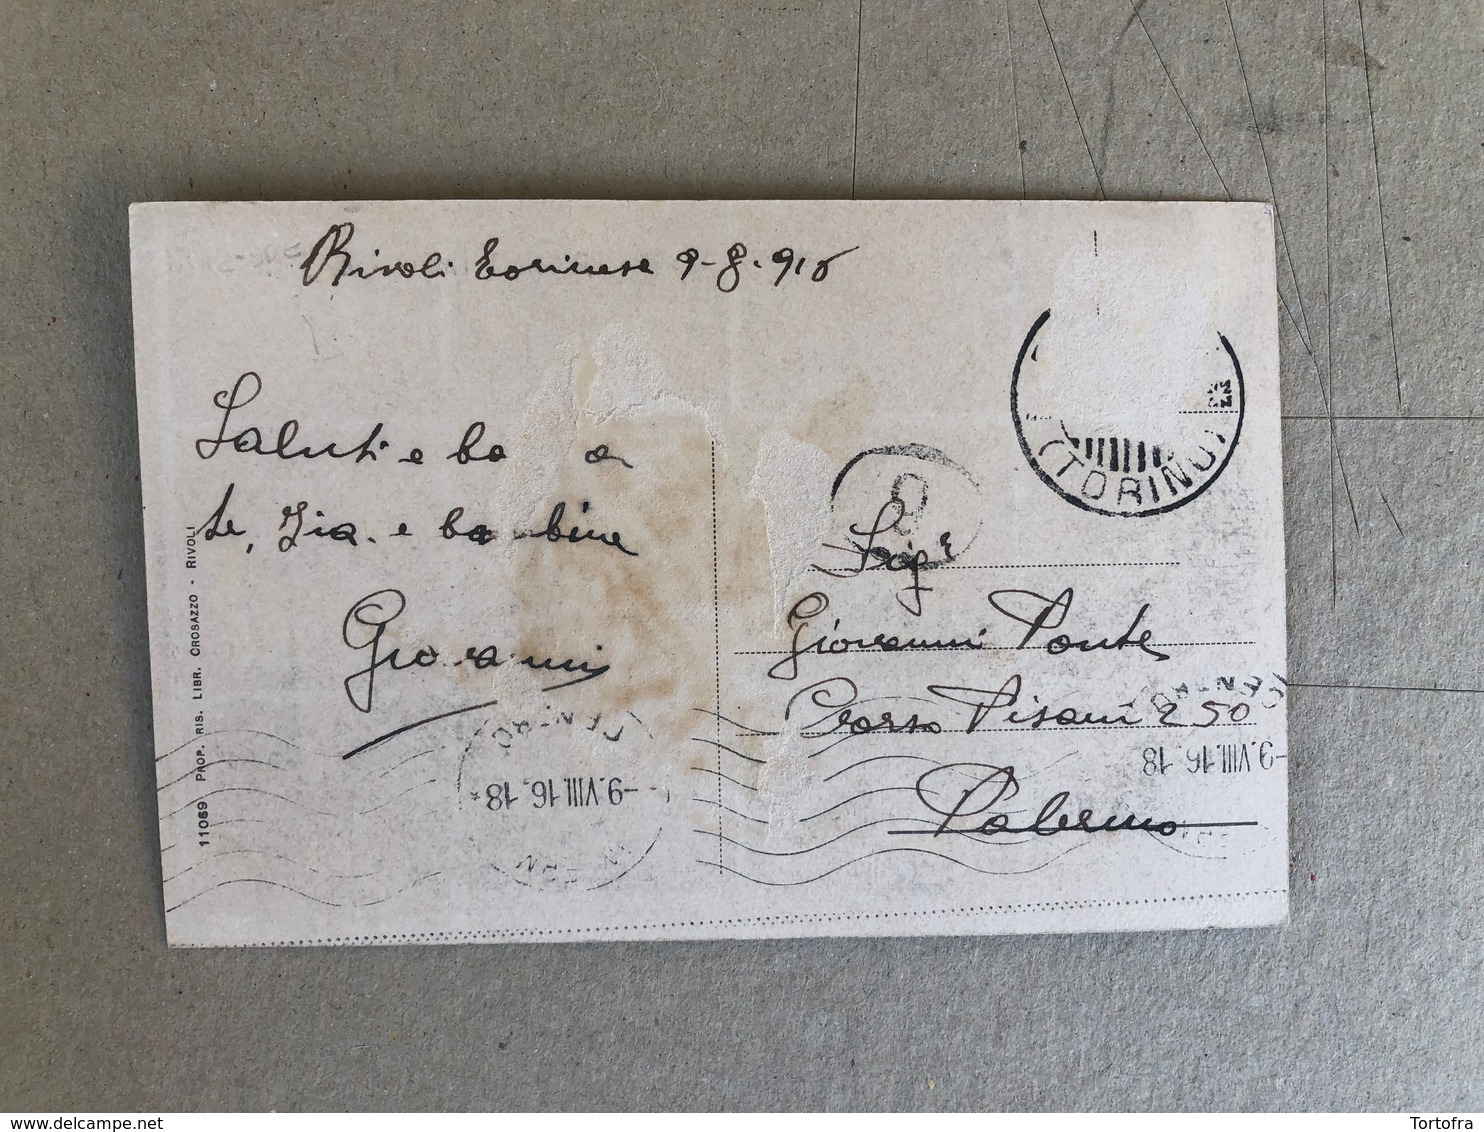 Rivoli Torinese 9-8-916
Saluti e ba
te, Zia e bambine
Giovanni
11069 PROP. RIS. LIBR. OROSAZZO - RIVOLI
(TORINO)
Sigr
Giovanni Ponte
Corso Pisani 250
Palermo
CENTRO
-9.VIII.16.18*
CENTRO
-9.VIII.16.18
Tortofra